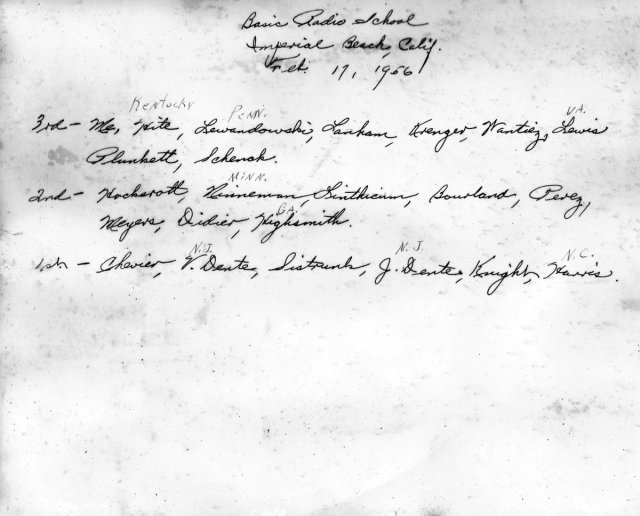 Basic Radio School
Imperial Beach, Calif.
Feb. 17, 1956
Kentucky Penn. VA.
3rd - Me, Hite, Lewandowski, Lanham, Krenger, Wantiez, Lewis
Plunkett, Schenok.
MINN.
2nd - Hockarott, Rinneman, Linthicum, Bourland, Perez,
GA.
Meyers, Didier, Highsmith.
N.J. N.J. N.C.
1st - Chevier, V. Dente, Sistrunk, J. Dente, Knight, Harris.